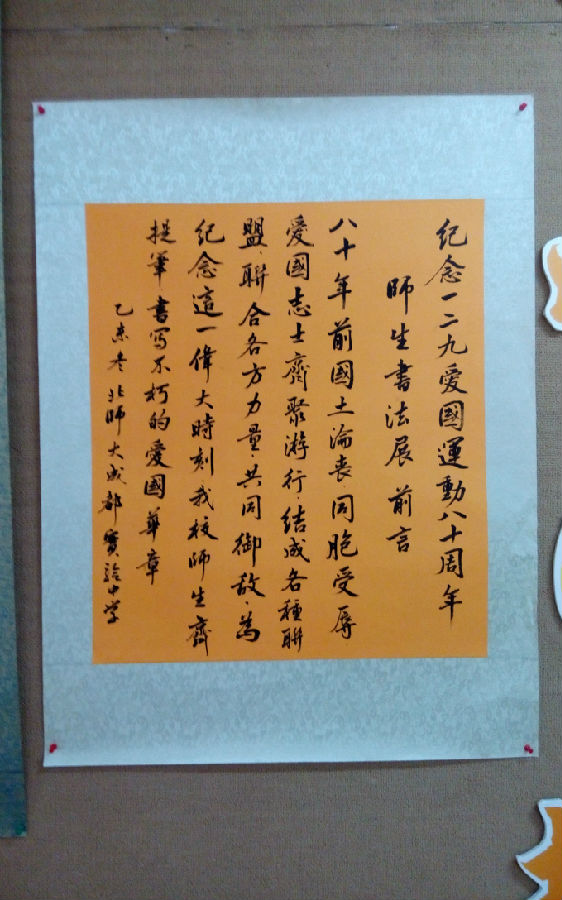 纪念一二九愛國運動八十周年
師生書法展前言
八十年前國土淪丧同胞受辱
愛國志士齊聚游行、結成各種聯
盟、聯合各方力量共同御敌、為
纪念這一偉大時刻我校師生齊
提筆書写不朽的愛國華章
乙未冬北師大成都實驗中学